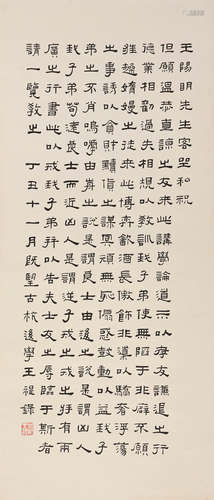 王陽明先生客坐私祝
但願溫恭直諒之友來此講學論道示以孝友謙退之行
德業相勸過失相規以教訓我子弟使無陷于非僻不願
狂躁惰慢之徒來此博奕飲酒長傲飾非導以驕奢淫蕩
之事誘以貪財黷貨之謀冥頑無恥扇惑鼓動以益我子
弟之不肖嗚呼由前之說是謂良士由後之說是謂凶人
我子弟苟遠良士而近凶人是謂逆子戒之戒之將有兩
廣之行書此以戒我子弟并以告夫士友之辱臨于斯者
請一覽教之 丁丑十一月既望古杭後學王禔錄